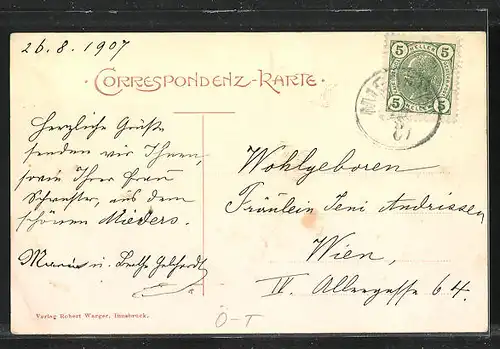 26.8.1907
CORRESPONDENZ-KARTE.
5 HELLER 5
5 HELLER 5
Herzliche Grüße
senden wir Ihnen,
sowie Ihrer Frau
Schwester, aus dem
schönen Mieders.
Marie u. Berthe
Wohlgeboren
Fräulein Jeni Andrissen
Wien,
IV. Allergasse 64.
Verlag Robert Warger, Innsbruck.
O-T